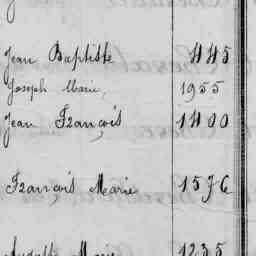 Jean Baptiste 445
Joseph Marie, 1955
Jean François 1400
François Marie 1576
Marie 1235